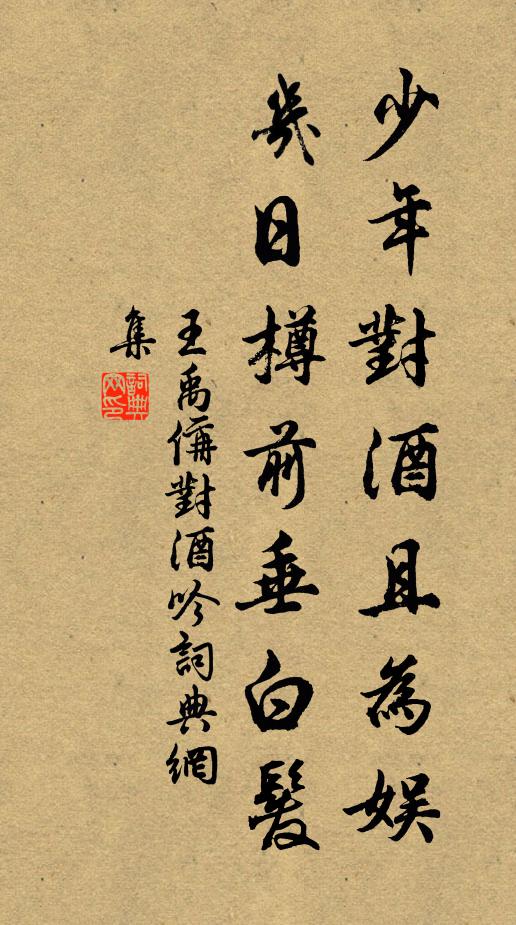 少年對酒且為娛
幾日樽前垂白髮
王禹偁對酒吟詞典網
集
詞典網印